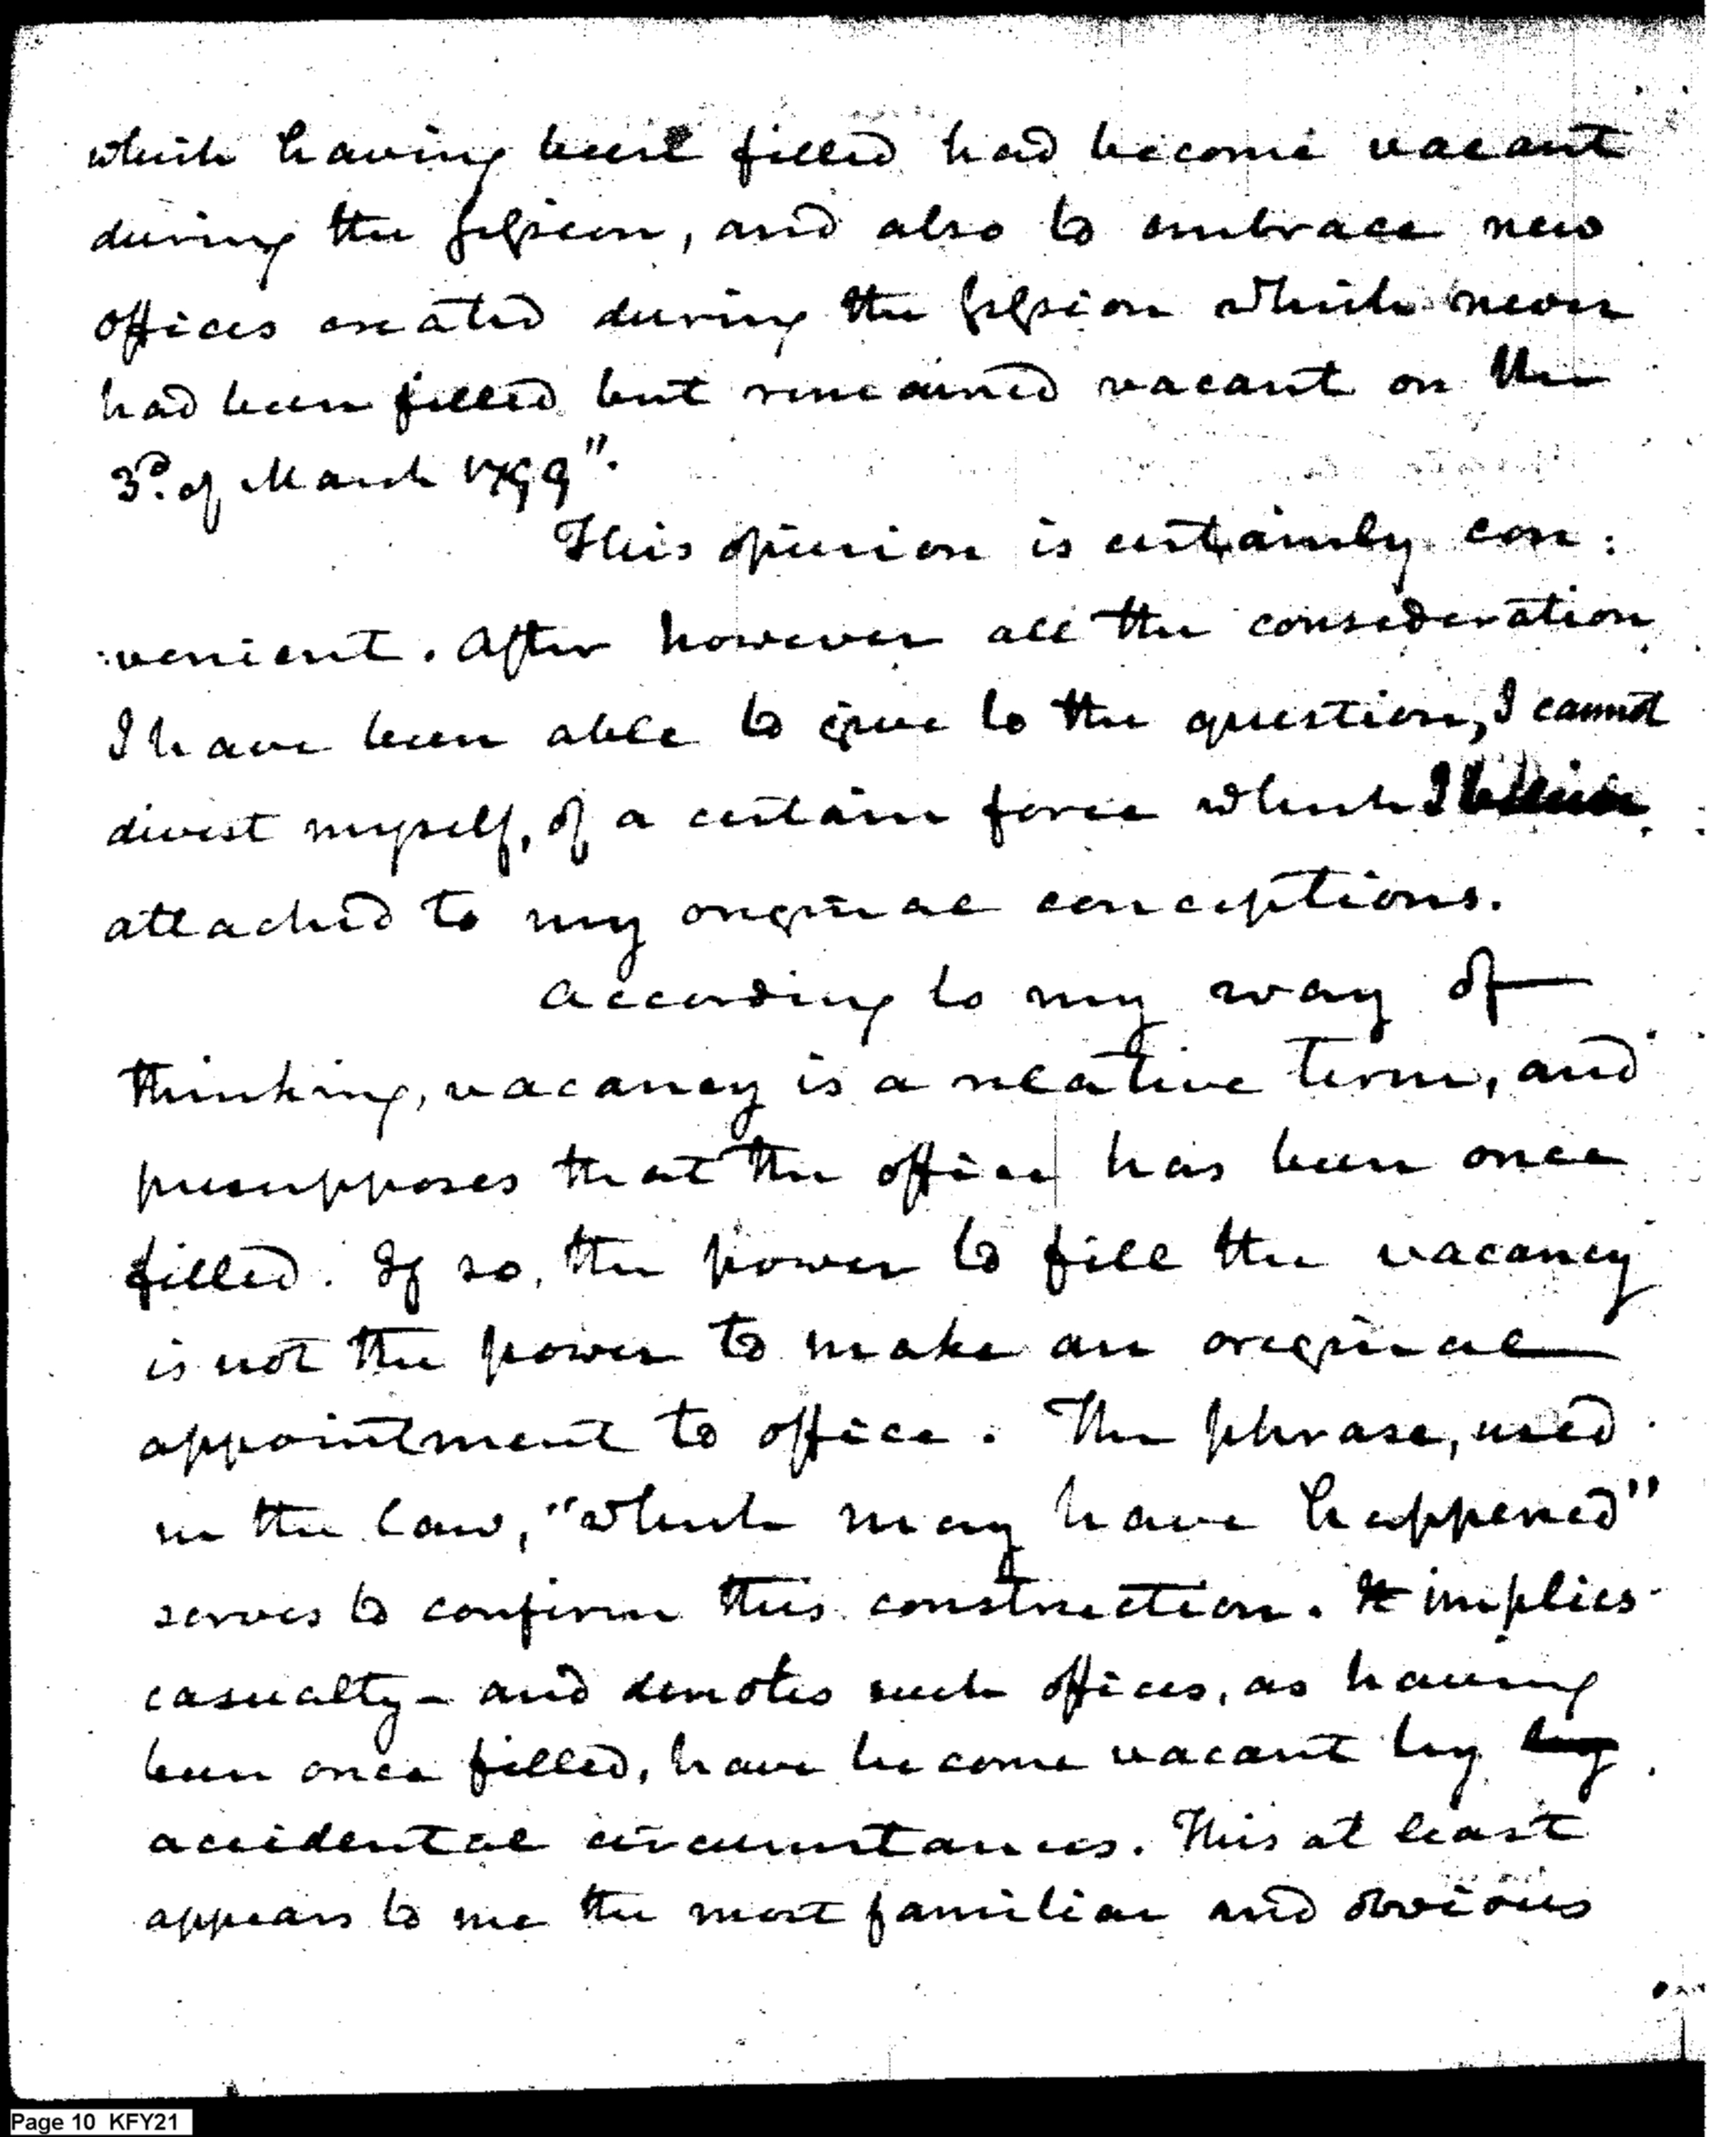 which having been filled had become vacant
during the session, and also to embrace new
offices created during the session which never
had been filled but remained vacant on the
3.d of March 1799".
This opinion is certainly con:
:venient. After however all the consideration
I have been able to give to the question, I cannot
divest myself, of a certain force which I believe
attached to my original conceptions.
According to my way of
thinking, vacancy is a relative term, and
presupposes that the office has been once
filled. If so, the power to fill the vacancy
is not the power to make an original
appointment to office. The phrase, used
in the law, "which may have happened"
serves to confirm this construction. It implies
casualty - and denotes such offices, as having
been once filled, have become vacant by by
accidental circumstances. This at least
appears to me the most familiar and obvious
Page 10 KFY21